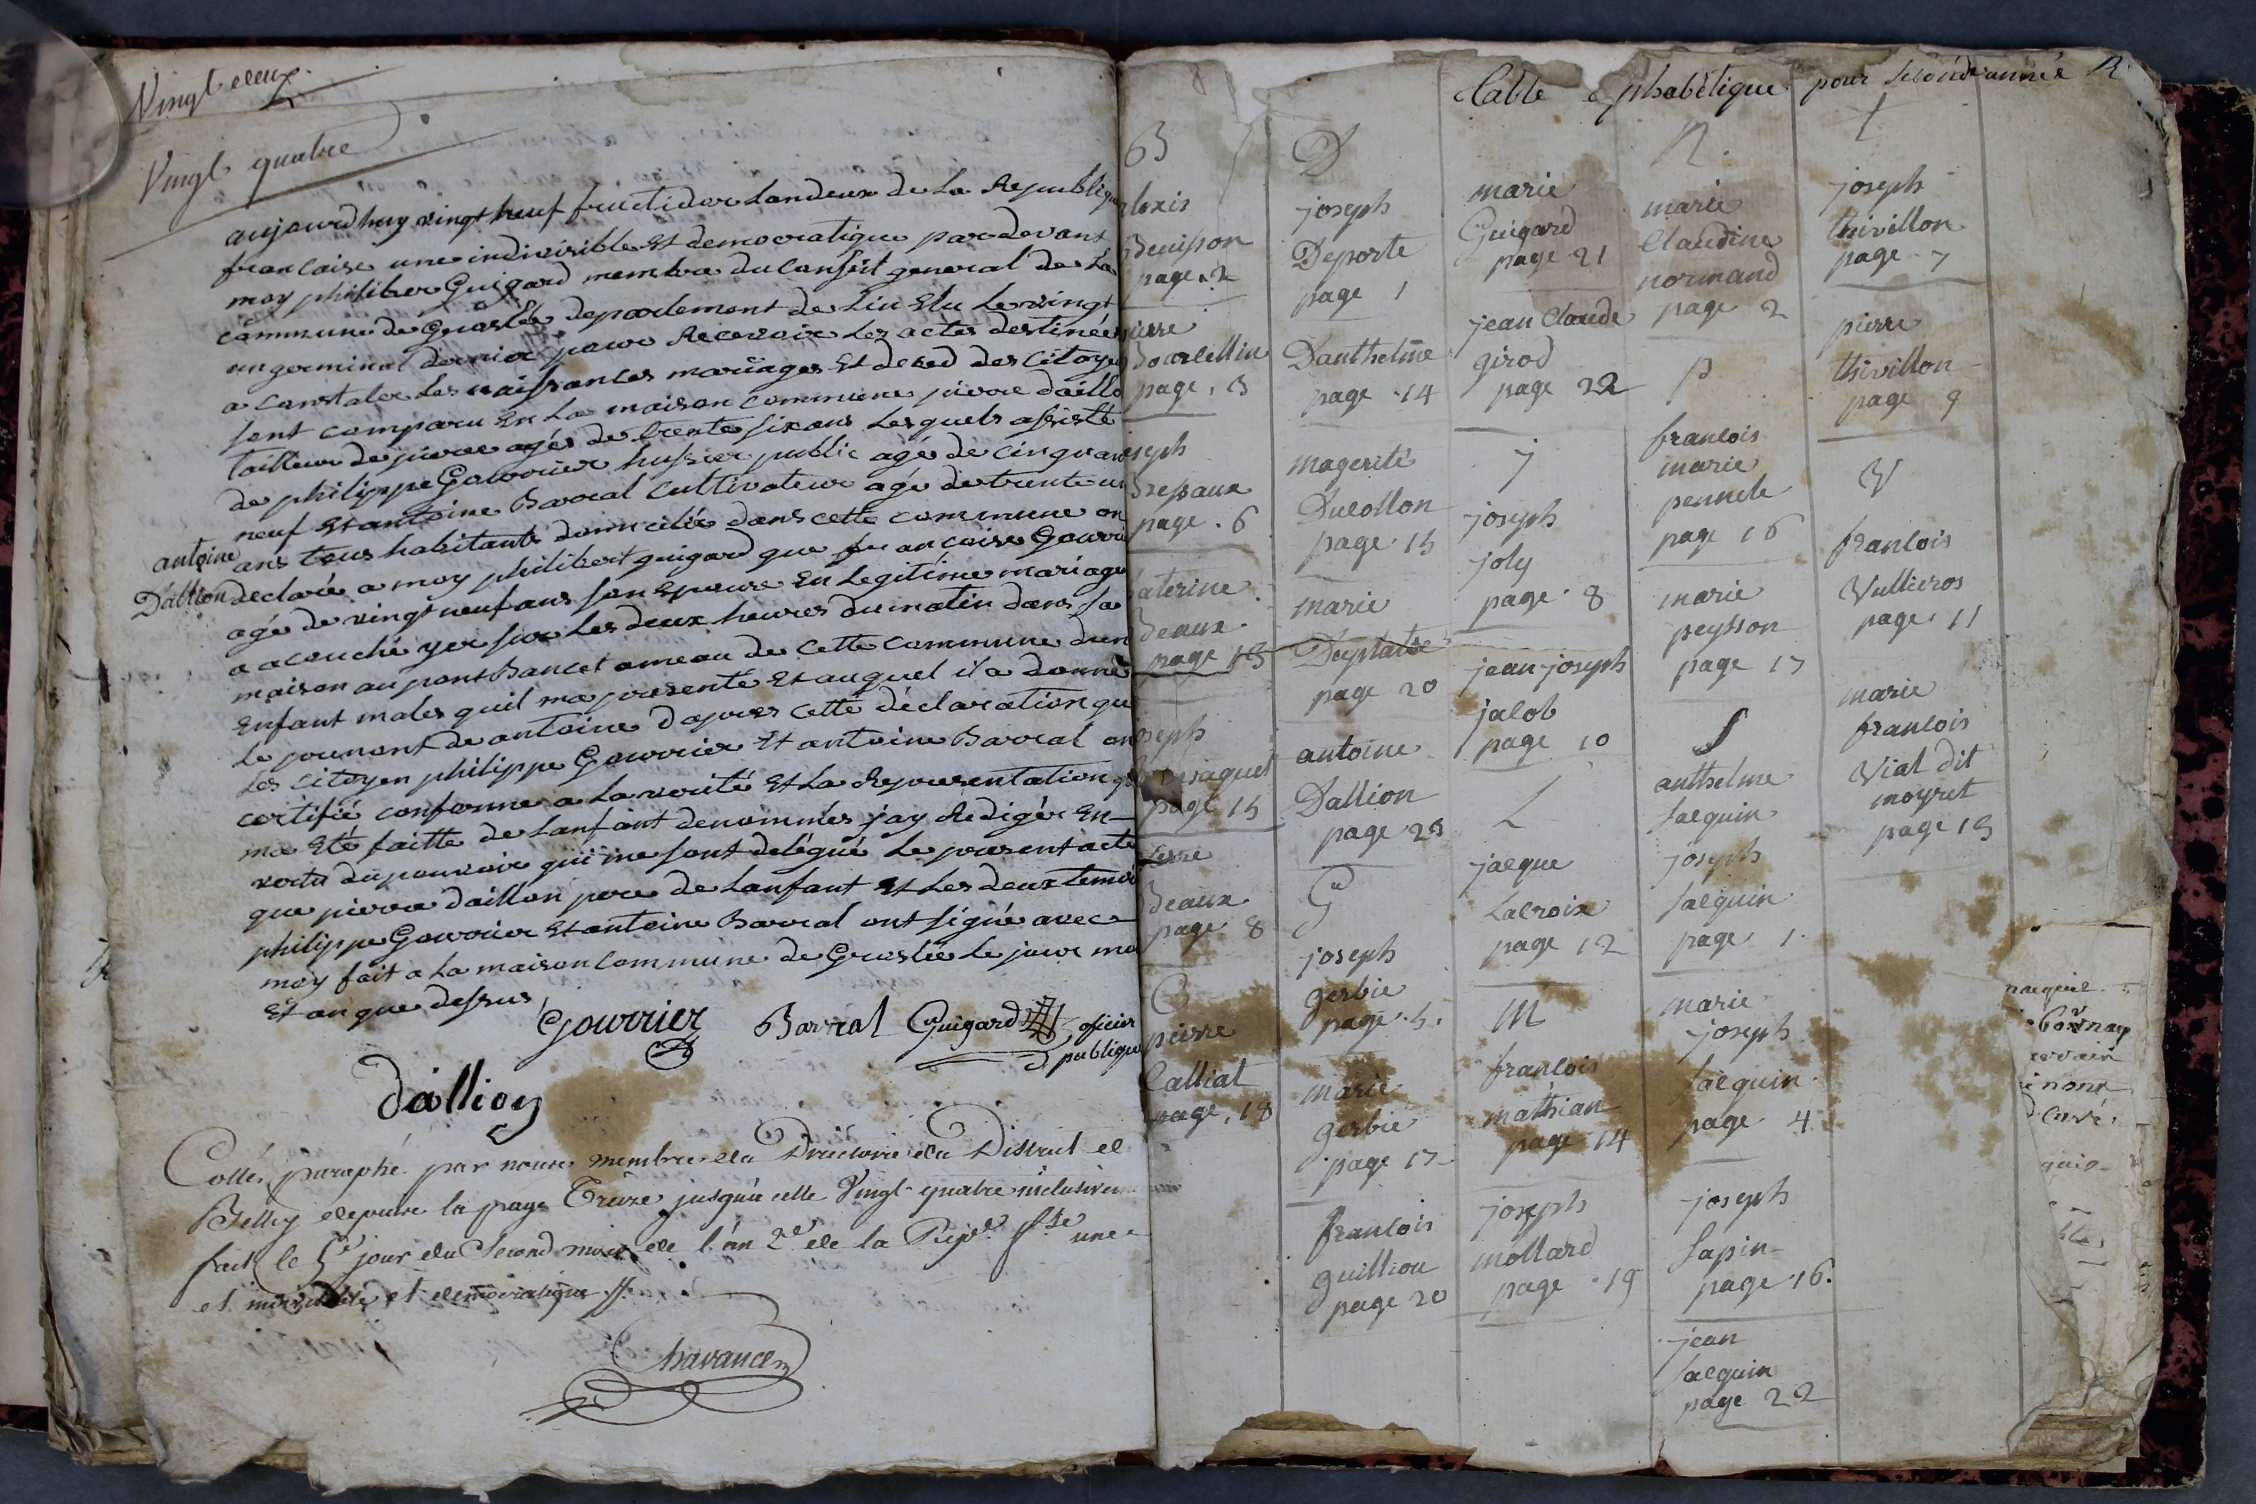 Vingt deux
Vingt quatre
aujourdhuy vingt neuf fructidor Landeux de La Republique
francaise une indivisible Et democratique par devant
moy philiber Guigard membre du Conseil general de La
commune de Groslée departement de Lin Elu Le vingt
un germinal dernier pour Recevoir Les actes destinées
a constater Les naissances mariages Et deced des Citoyens
sont comparu En La maison commune pierre daillo
tailleur de pierre agés de trente six ans Lesquels assisté
de philippe Gourrier hussier public agé de cinquan
neuf Et antoine Barral Cultivateur agé de trente un
ans tous habitants domiciliés dans cette commune on
antoine
Dallion
declaré a moy philibert guigard que francoise Gourri
agé de vingt neuf ans son Epouse En Legitime mariage
a acouché yer sur Les deux heures du matin dans sa
maison au pont Bancet ameau de cette commune dun
Enfant males quil ma presenté Et auquel il a donné
Le prenont de antoine dapres cette déclaration qu
Les Citoyen philippe Gourrier Et antoine Barral on
certifié conforme a La verité Et La Representation q
ma Eté faitte de Lanfant denommés jay Redigér En
vertu du pouvoir qui me sont delégué Le present acte
que pierre daillon pere de Lanfant Et Les deux temoi
philippe Gourrier Et antoine Barral ont signé avec
moy fait a La maison Commune de Groslée Le jour mo
Et an que dessus
Gourrier Barral Guigard officier
publique
Dallion
Cotté, paraphé par nous membre du Directoire du District de
Belley depuis la page Treize jusqu'a celle Vingt quatre inclusivem
fait le 5e jour du Second mois de l'an 2e de la Repe. fse une
et indivisible et democratique
Chavance
Table alphabétique pour seconde année R
B
alexis
Benisson
page 2
pierre
Bourcellin
page 3
joseph
Bressaux
page 6
Caterine
Beaux
page 13
joseph
page 15
pierre
Beaux
page 8
C
peirre
Calliat
page 18
D
joseph
Deporte
page 1
Danthelme
page 14
magerite
Ducollon
page 15
marie
Deplatte
page 20
antoine
Dallion
page 23
G
joseph
gerbie
page 5
marie
gerbie
page 17
francois
guilliou
page 20
marie
Guigard
page 21
jean Claude
girod
page 22
J
joseph
joly
page 8
jean joseph
jacob
page 10
L
jacque
Lacroix
page 12
M
francois
mathian
page 14
joseph
mollard
page 19
N
marie
Claudine
normand
page 2
P
francois
marie
pennele
page 16
marie
peysson
page 17
S
anthelme
Sacquin
joseph
Sacquin
page 1
marie
joseph
Sacquin
page 4
joseph
Sapin
page 16
jean
Sacquin
page 22
T
joseph
thivillon
page 7
pierre
thivillon
page 9
V
francois
Vullieros
page 11
marie
francois
Vial dit
moyret
page 13